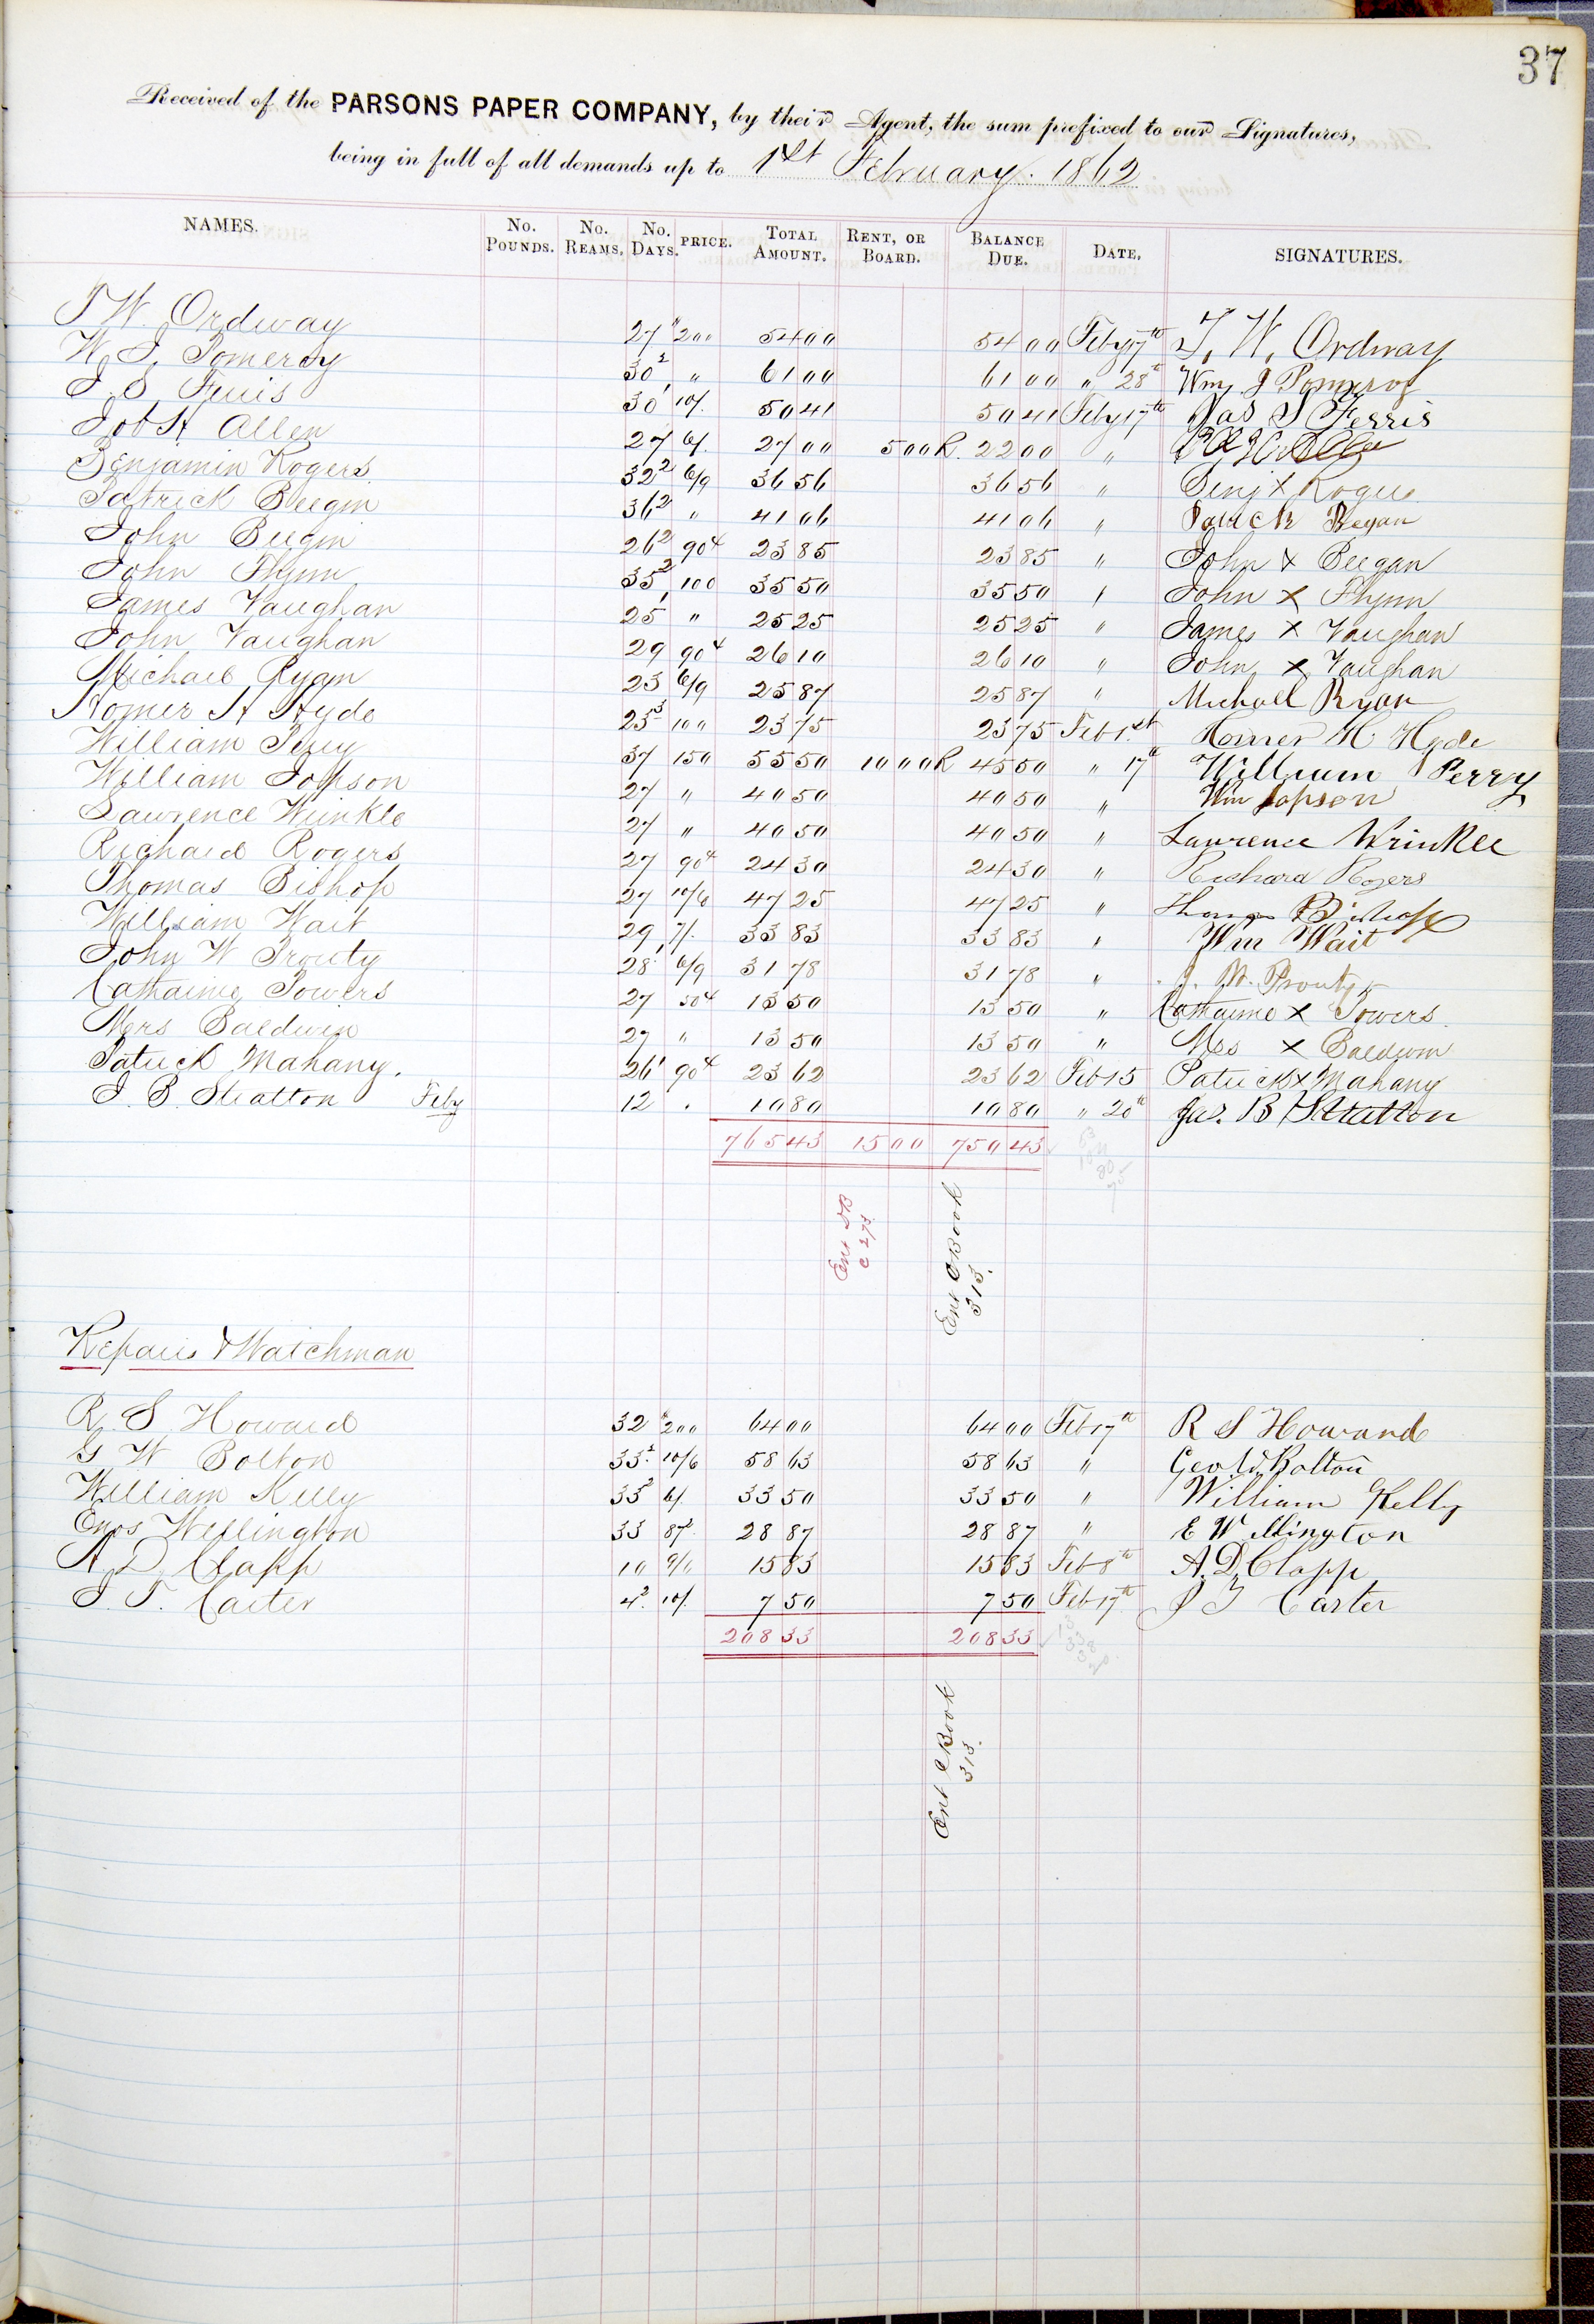 37
Received of the PARSONS PAPER COMPANY, by their Agent, the sum prefixed to our Signatures,
being in full of all demands up to 1st February. 1862
NAMES. No. Pounds. No. Reams. No. Days. PRICE. Total Amount. Rent, or Board. Balance Due. Date. SIGNATURES.
T W. Ordway 27 "200 5400 5400 Feby 17th T. W. Ordway
W. J. Pomeroy 30² " 6100 6100 " 28th Wm J Pomeroy
J. S. Ferris 30¹ 10/. 5041 5041 Feby 17th Jas S Ferris
Job H Allen 27 6/. 2700 500R. 2200 "
Benjamin Rogers 32² 6/9 3656 3656 " Benj X Rogers
Patrick Beegin 36² " 4106 4106 " Patrick Began
John Beegin 26² 90¢ 2385 2385 " John X Beegan
John Flynn 35² 100 3550 3550 " John X Flynn
James Vaughan 25¹ " 2525 2525 " James X Vaughan
John Vaughan 29 90¢ 2610 2610 " John X Vaughan
Michael Ryan 23 6/9 2587 2587 " Michael Ryan
Homer H Hyde 23³ 100 2375 2375 Feb 1st Homer H Hyde
William Perry 37 150 5550 1000R 4550 " 17th William Perry
William Jopson 27 " 4050 4050 " Wm Jopson
Lawrence Wrinkle 27 " 4050 4050 " Lawrence Wrinkle
Richard Rogers 27 90¢ 2430 2430 " Richard Rogers
Thomas Bishop 27 10/6 4725 4725 " Thomas Bishop
William Wait 29 7/. 3383 3383 " Wm Wait
John W Prouty 28¹ 6/9 3178 3178 " J. W. Prouty
Catharine Powers 27 50¢ 1350 1350 " Catharine X Powers
Mrs Baldwin 27 " 1350 1350 " Mrs X Baldwin
Patrick Mahany. 26¹ 90¢ 2362 2362 Feb 15 Patrick X Mahany
J. B. Stratton Feby 12 . 1080 1080 " 20th Jas. B Stratton
76543 1500 75043
Ent DB
C 273
Ent CBook
313.
Repairs & Watchman
R. S. Howard 32 "200 6400 6400 Feb 17th R S Howard
G W Bolton 33² 10/6 5863 5863 " Geo W. Bolton
William Kelly 33² 6/. 3350 3350 " William Kelly
Enos Wellington 33 87² 2887 2887 " E Wellington
A D. Clapp 10 9/6 1583 1583 Feb 8th A. D. Clapp
J. T. Carter 4² 10/. 750 750 Feb 17th J T Carter
20833 20833
Ent CBook
313.